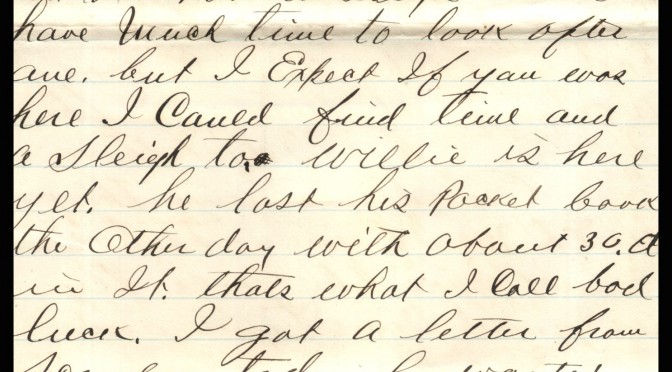 have Much time to look after
one. but I Expect If you was
here I Could find time and
a Sleigh too Willie is here
yet. he lost his Pocket book
the Other day with about 30.
in It. thats what I Call bad
luck. I got a letter from